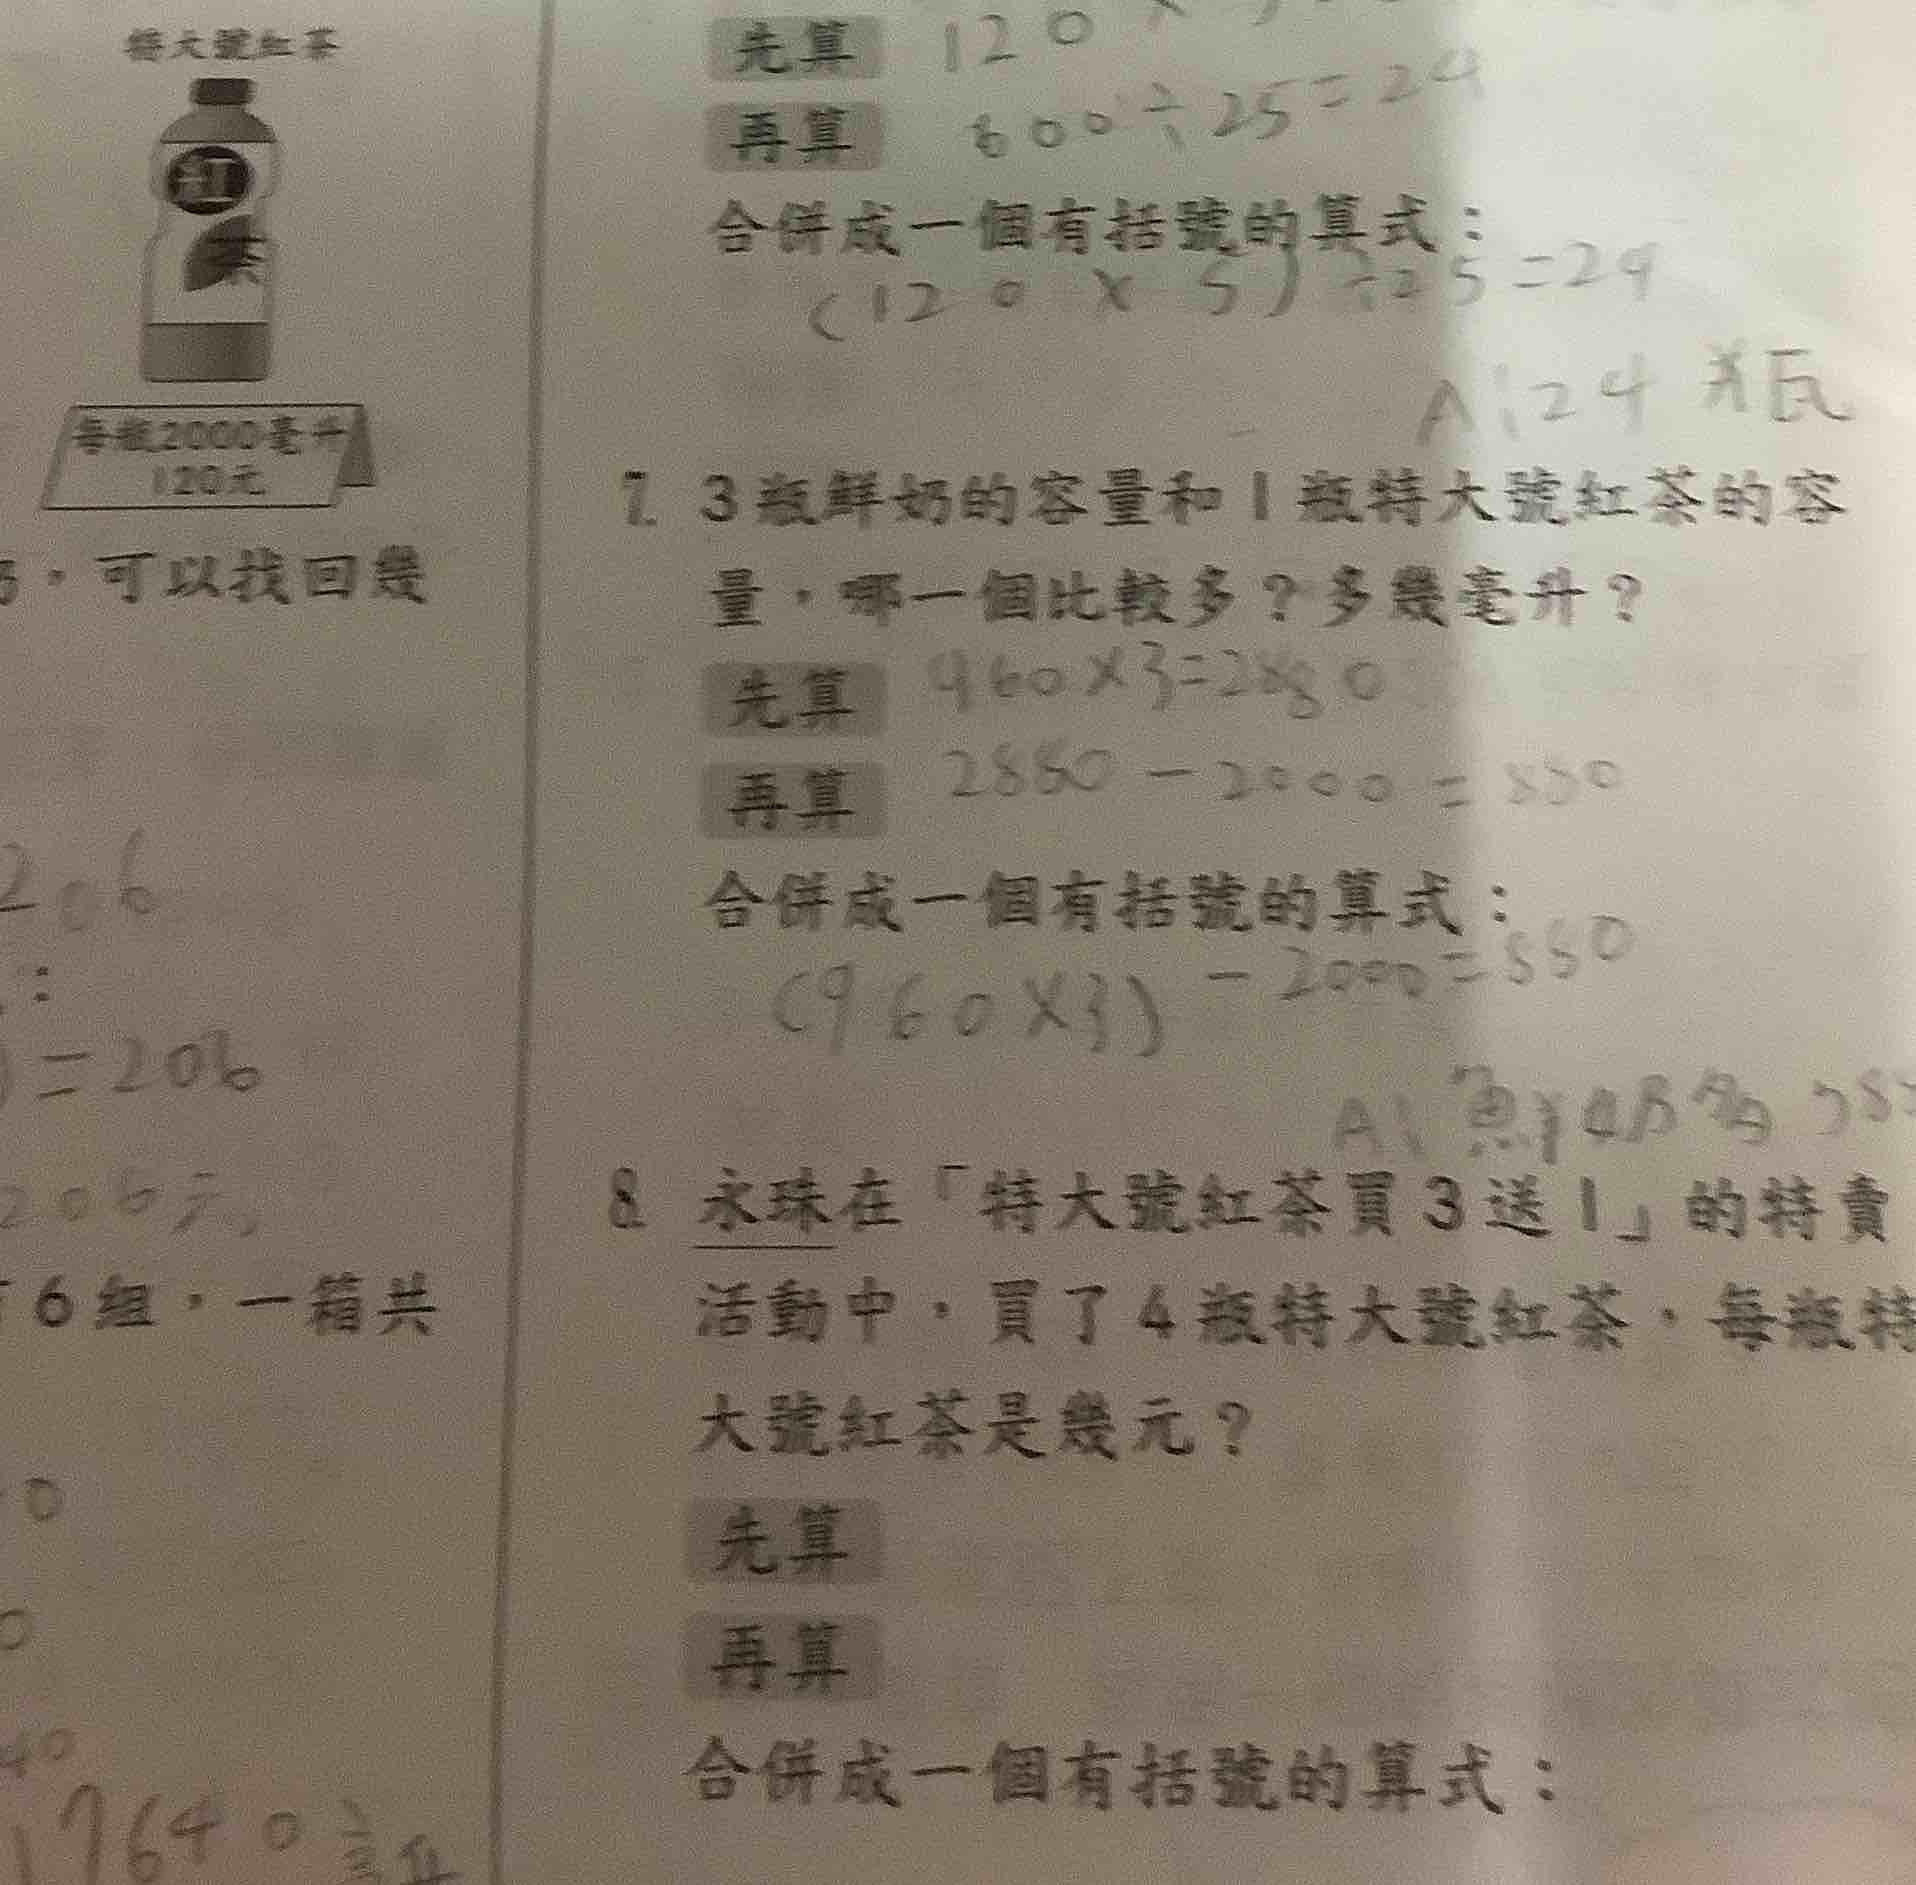 特大號紅茶
紅
茶
每瓶2000毫升
120元
，可以找回幾
206
：
)=206
206元
6組，一箱共
0
0
40
17640
先算 120×
再算 600÷25=24
合併成一個有括號的算式：
(120×5)÷25=24
A:24瓶
7. 3瓶鮮奶的容量和1瓶特大號紅茶的容
量，哪一個比較多？多幾毫升？
先算 960×3=2880
再算 2880-2000=880
合併成一個有括號的算式：
(960×3)-2000=880
A:鮮奶多
8. 永珠在「特大號紅茶買3送1」的特賣
活動中，買了4瓶特大號紅茶，每瓶特
大號紅茶是幾元？
先算
再算
合併成一個有括號的算式：